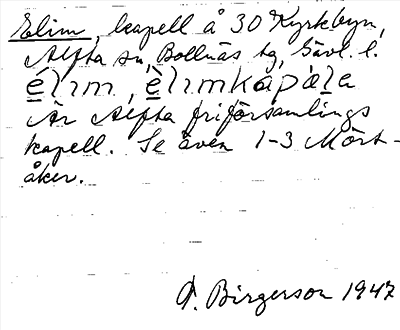 Elim, kapell å 30 Kyrkbyn,
Alfta sn, Bollnäs tg, Gävl. l.
élım, èlımkapàla
Är Alfta friförsamlings
kapell. Se även 1-3 Mört-
åker.
A. Birgerson 1947